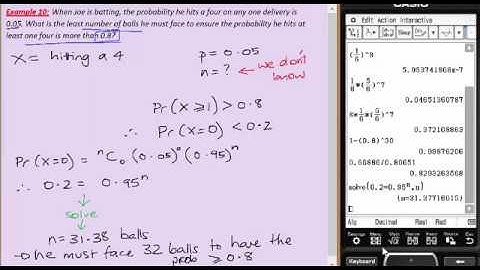 Example 10: When Joe is batting, the probability he hits a four on any one delivery is
0.05. What is the least number of balls he must face to ensure the probability he hits at
least one four is more than 0.8?
X = hitting a 4
p = 0.05
n = ?
← we don't
know
Pr(X≥1) > 0.8
∴ Pr(X=0) < 0.2
Pr(X=0) = ⁿC₀ (0.05)⁰ (0.95)ⁿ
∴ 0.2 = 0.95ⁿ
solve
n = 31.38 balls
one must face 32 balls to have the
prob ≥ 0.8
CASIO
File Edit Action Interactive
5.953741868ᴇ-7
0.04651360787
0.372108863
1-(0.8)^30
0.99876206
0.66886/0.80651
0.8293263568
solve(0.2=0.95ⁿ,n)
{n=31.37716015}
Alg Decimal Real Rad
Menu
Settings
Keyboard